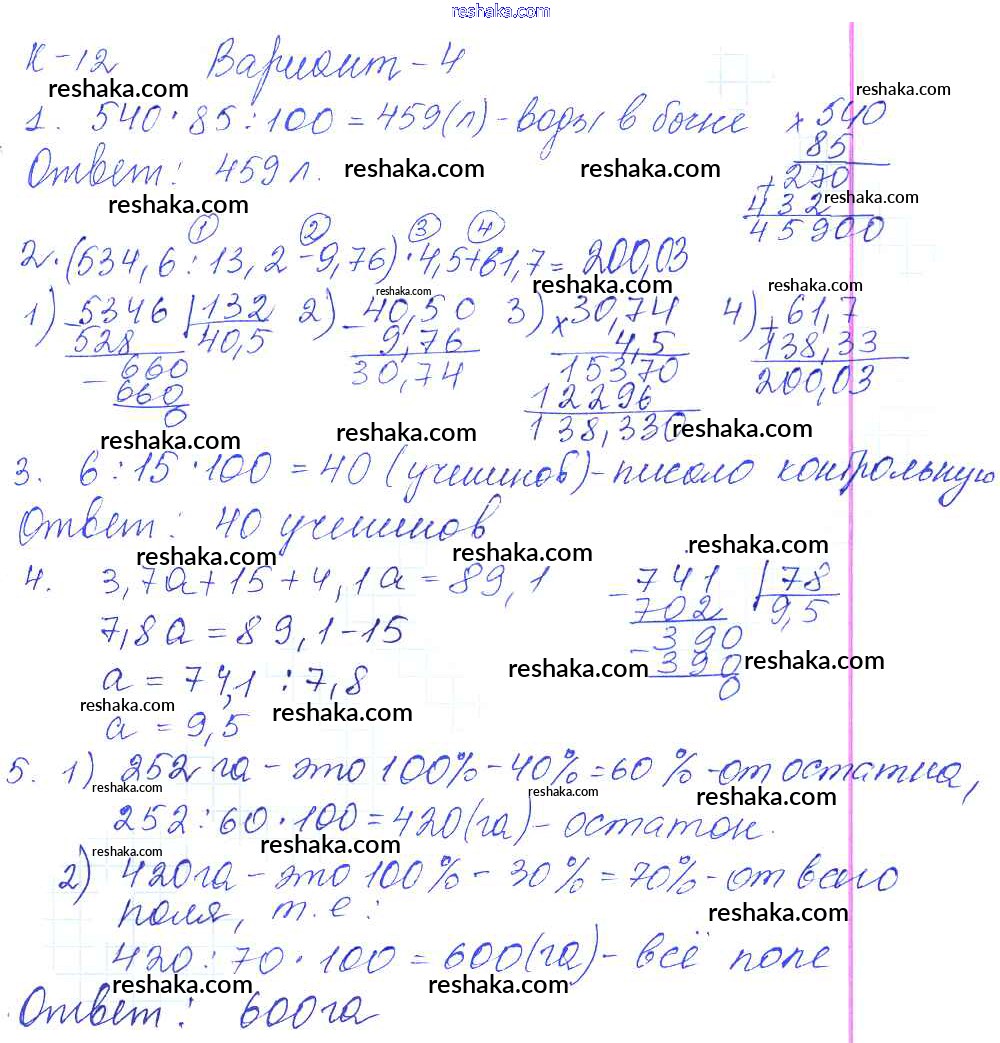 reshaka.com
К-12 Вариант-4
reshaka.com
reshaka.com
1. 540·85:100=459(л)-воды в бочке
×540
85
Ответ: 459 л.
reshaka.com
reshaka.com
+270
reshaka.com
reshaka.com
432
45900
1 2 3 4
2.(534,6:13,2-9,76)·4,5+61,7=200,03
reshaka.com
reshaka.com
1) 5346 132
-528 40,5
-660
660
0
2) -40,50
9,76
30,74
3) ×30,74
4,5
15370
12296
138,330
4) +61,7
138,33
200,03
reshaka.com
reshaka.com
reshaka.com
3. 6:15·100=40(учеников)-писало контрольную
Ответ: 40 учеников
reshaka.com
reshaka.com
reshaka.com
4. 3,7а+15+4,1а=89,1
7,8а=89,1-15
а=74,1:7,8
а=9,5
-741 78
702 9,5
-390
390
0
reshaka.com
reshaka.com
reshaka.com
reshaka.com
5. 1) 252га-это 100%-40%=60%-от остатка,
reshaka.com
reshaka.com
reshaka.com
252:60·100=420(га)-остаток.
reshaka.com
reshaka.com
2) 420га-это 100%-30%=70%-от всего
поля, т.е:
reshaka.com
420:70·100=600(га)-всё поле
reshaka.com
reshaka.com
Ответ: 600га